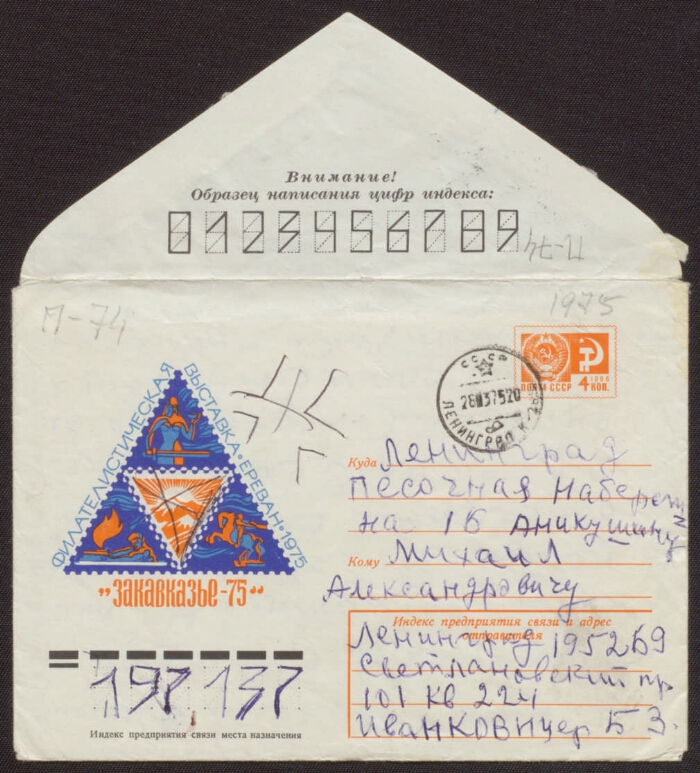 Внимание!
Образец написания цифр индекса:
0123456789
П-74
П-74
1975
ПОЧТА СССР
1966
4 КОП.
СССР
ЛЕНИНГРАД
ФИЛАТЕЛИСТИЧЕСКАЯ ВЫСТАВКА * ЕРЕВАН * 1975
„ЗАКАВКАЗЬЕ-75“
Куда Ленинград
Песочная Набереж
на 16 Аникушину
Кому Михаил
Александровичу
Индекс предприятия связи и адрес отправителя
Ленинград 195269
Светлановский пр
101 кв 224
Иванковицер Б З.
197 137
Индекс предприятия связи места назначения